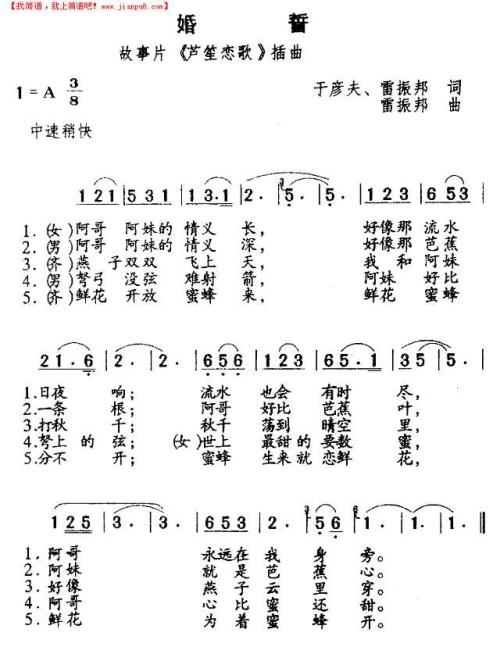 【找简谱，就上简谱吧！www.jianpu8.com】
婚 誓
故事片《芦笙恋歌》插曲
1=A 3/8
于彦夫、雷振邦 词
雷振邦 曲
中速稍快
1 2 1 | 5 3 1 | 1 3·1 | 2· | 5· | 5· | 1 2 3 | 6 5 3 |
1.(女)阿哥 阿妹的 情义 长， 好像那 流水
2.(男)阿哥 阿妹的 情义 深， 好像那 芭蕉
3.(齐)燕 子双双 飞上 天， 我 和 阿妹
4.(男)弩弓 没弦 难射 箭， 阿妹 好比
5.(齐)鲜花 开放 蜜蜂 来， 鲜花 蜜蜂
2 1·6 | 2· | 2· | 6 5 6 | 1 2 3 | 6 5·1 | 3 5 | 5· |
1.日夜 响； 流水 也会 有时 尽，
2.一条 根； 阿哥 好比 芭蕉 叶，
3.打秋 千； 秋千 荡到 晴空 里，
4.弩上 的 弦； (女)世上 最甜的 要数 蜜，
5.分不 开； 蜜蜂 生来就 恋鲜 花，
1 2 5 | 3· | 3· | 6 5 3 | 2 3 2 | 2 5 6 | 1· | 1· ‖
1.阿哥 永远在 我 身 旁。
2.阿妹 就 是 芭 蕉 心。
3.好像 燕 子 云 里 穿。
4.阿哥 心 比 蜜 还 甜。
5.鲜花 为 着 蜜 蜂 开。